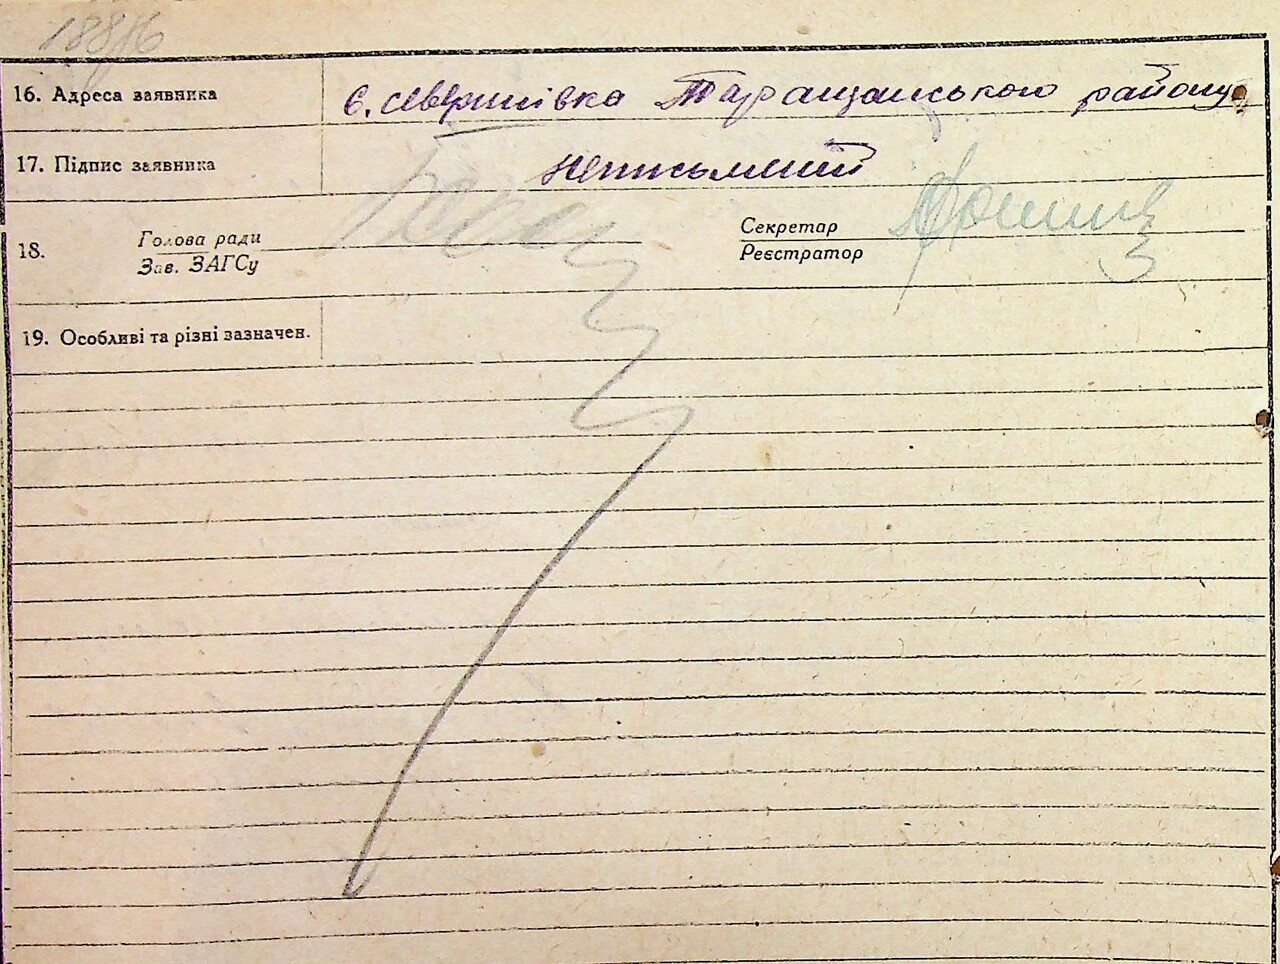 188/6
16. Адреса заявника с. Северинівка Таращанського району
17. Підпис заявника неписьмений
18. Голова ради Секретар
Зав. ЗАГСу Реєстратор
19. Особливі та різні зазначен.